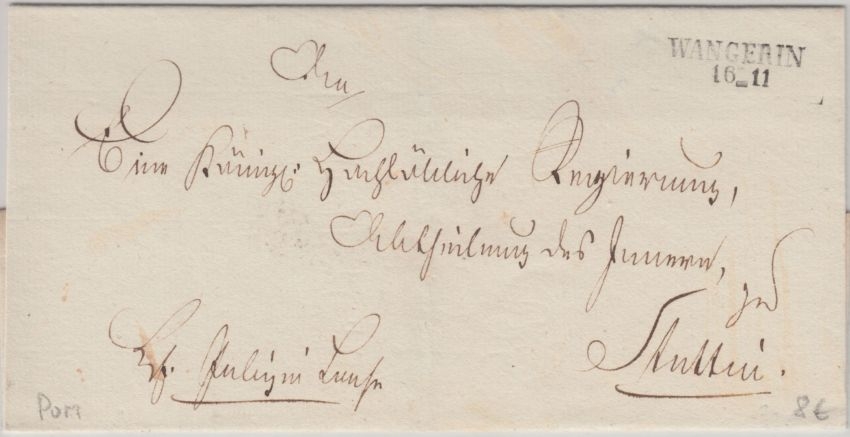 WANGERIN
16_11
An
Eine Königl. Hochlöbliche Regierung,
Abtheilung des Innern,
zu
Stettin.
Polizei
Pom
8€